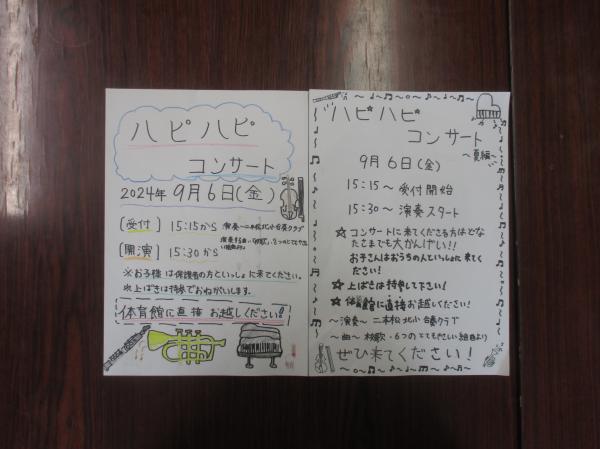 ハピハピ
コンサート
2024年9月6日(金)
[受付] 15:15から 演奏〜二本松北小合奏クラブ
[開演] 15:30から
※お子様は保護者の方といっしょに来てください。
※上ばきは持参でおねがいします。
体育館に直接お越しください!
ハピハピ
コンサート
〜夏編〜
9月6日(金)
15:15〜受付開始
15:30〜演奏スタート
☆コンサートに来てくださる方はどな
たさまでも大かんげい!!
お子さんはおうちの人といっしょに来てく
ださい!
☆上ばきは持参して下さい!
☆体育館に直接お越しください!
〜演奏〜 二本松北小 合奏クラブ
〜曲〜 校歌・6つのとてもやさしい組曲より
ぜひ来てください!